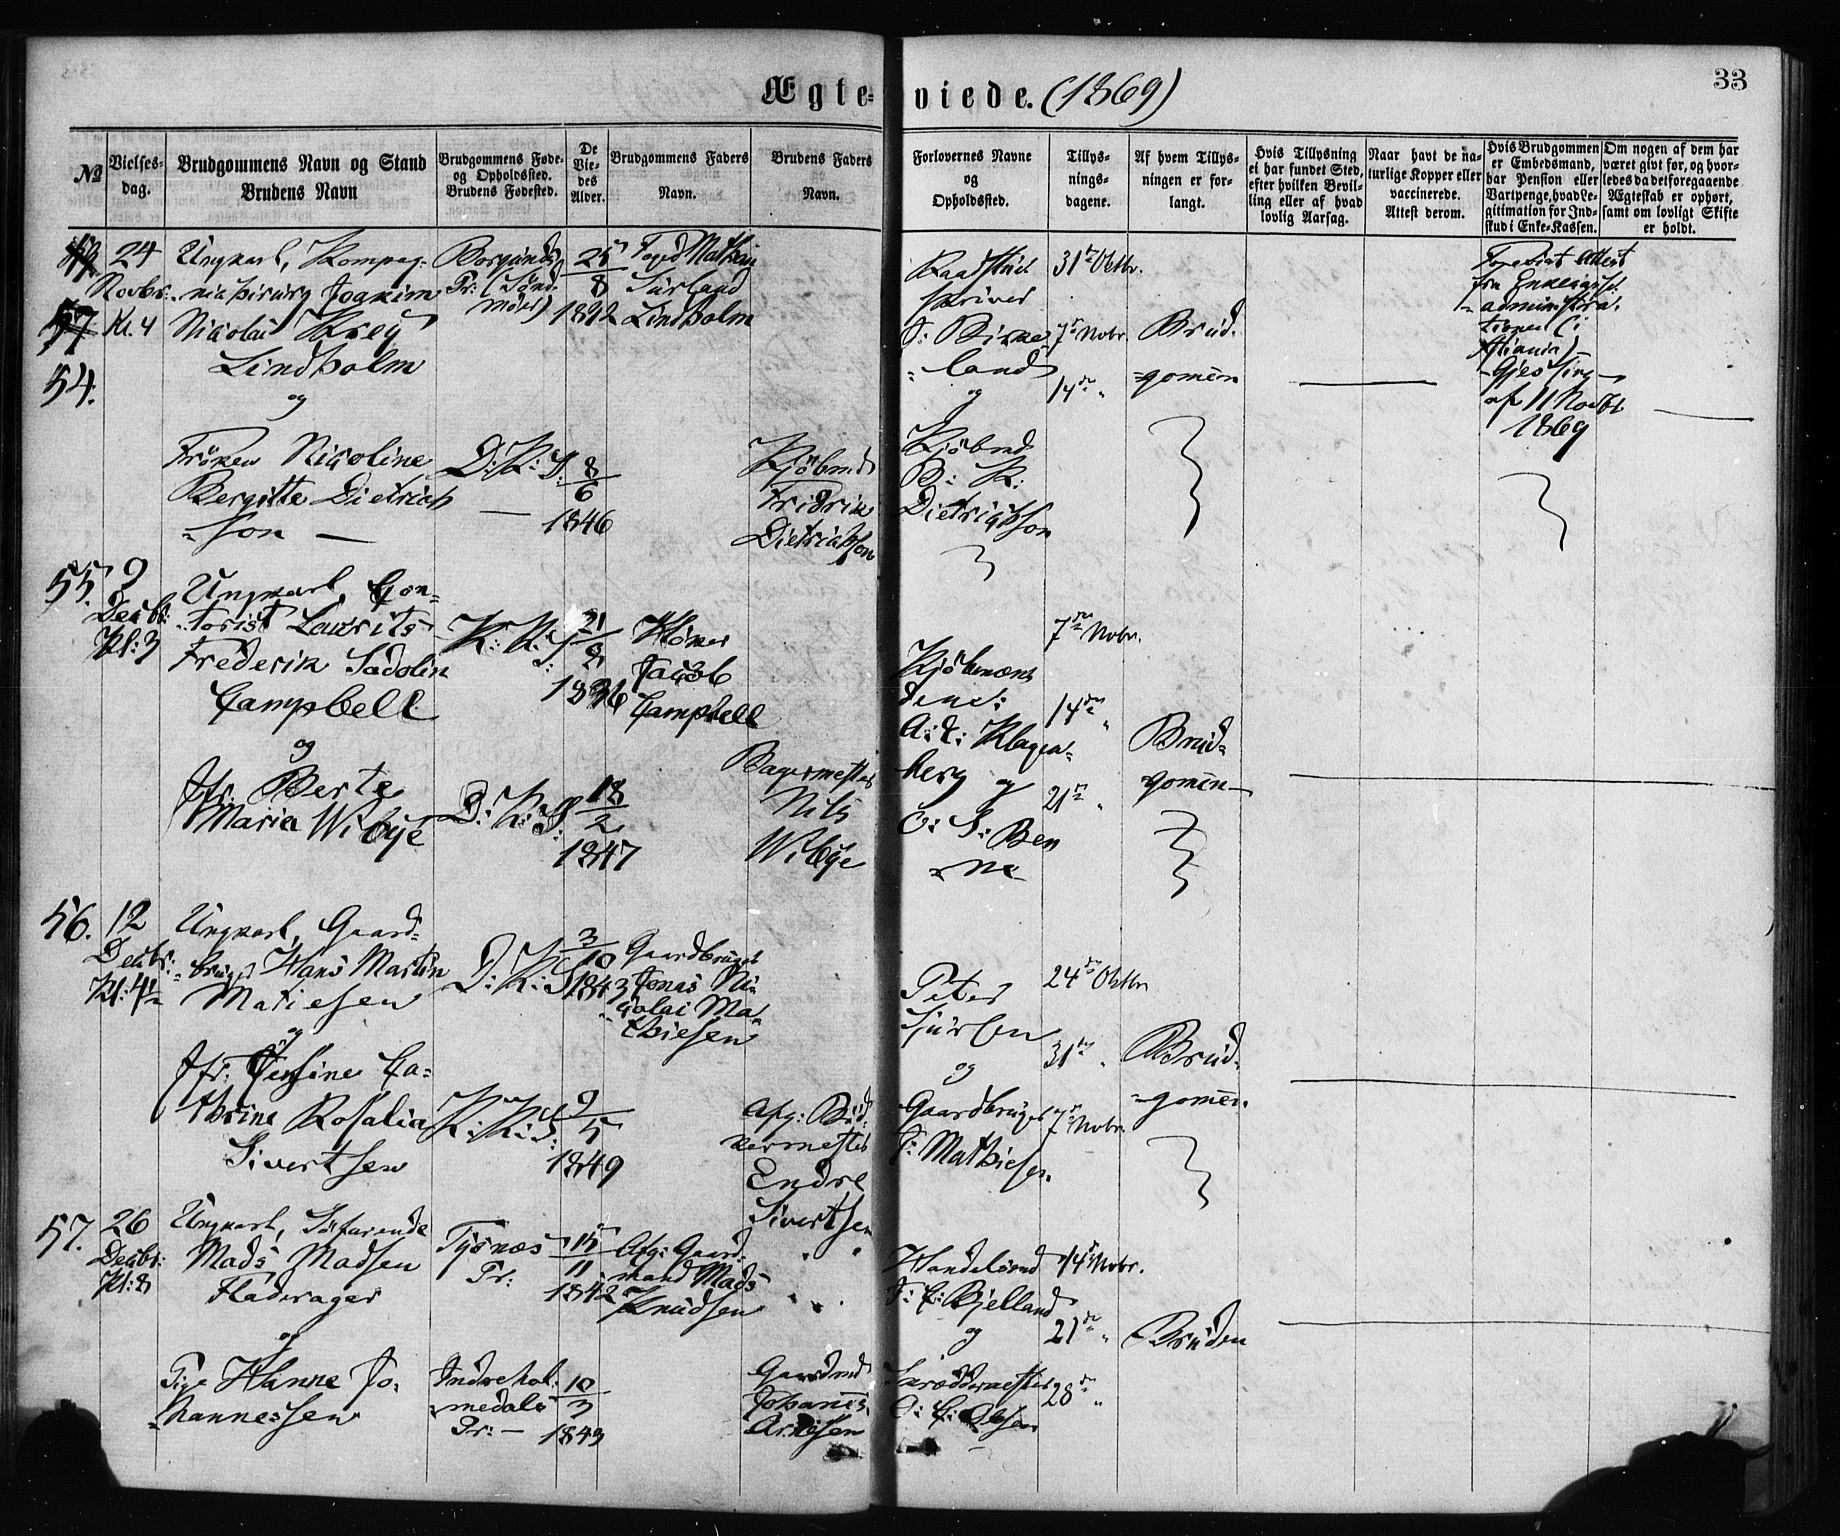 33
Ægte-viede. (1869)
№
Vielses-
dag.
Brudgommens Navn og Stand
Brudens Navn
Brudgommens Føde-
og Opholdssted.
Brudens Fødested.
De
Vie-
des
Alder.
Brudgommens Faders
Navn.
Brudens Faders
Navn.
Forlovernes Navne
og
Opholdssted.
Tillys-
nings-
dagene.
Af hvem Tillys-
ningen er for-
langt.
Hvis Tillysning
ei har fundet Sted,
efter hvilken Bevil-
ling eller af hvad
lovlig Aarsag.
Naar havt de na-
turlige Kopper eller
vaccinerede.
Attest derom.
Hvis Brudgommen
er Embedsmand,
har Pension eller
Vartpenge, hvad Le-
gitimation for Ind-
skud i Enke-Kassen.
Om nogen af dem har
været givt før, og hvor-
ledes da det foregaaende
Ægteskab er ophørt,
samt om lovligt Skifte
er holdt.
54.
24
Novbr.
Kl. 4
Ungkarl, Kompag-
nichirurg Joakim
Nicolai Krey
Lindholm
og
Frøken Nicoline
Bergitte Dietrich
=son
Borgunds
Pr: (Sönd-
möer)
D: K: S:
25
8
1842
8
6
1846
Foged Mathias
Lindholm
Kjöbmd
Fridrik
Dietrichson
Raadstue
skriver
Birke
=land
og
Kjöbmd
B: K:
Dietrichson
31te Oktbr.
7de Novbr
14de "
Brud-
=gomen
Forevist Attest
fra Enkekasse
=administra
tionen (i
11 Novbr
1869
55.
9
Decbr:
Kl: 3
Ungkarl, Con-
torist Laurits
Frederik Sadolin
Campbell
og
Jfr: Berte
Maria Wibye
K: K: S:
D: K: S:
21
2
1836
18
2
1847
Jacob
Campbell
Bagermester
Nils
Wibye
Kjöbmænd
dene:
Klagen-
berg og
O: S: Ben
=ne
7de Nvbr.
14de "
21de "
Brud-
=gomen
56.
12
Decbr:
Kl: 4½
Ungkarl, Gaard-
bruger Hans Martin
Matiesen
og
Jfr: Jensine Ca-
thrine Rosalia
Sivertsen
D: K: S
K: K: S:
3
10
1843
9
5
1849
Gaardbruger
Jonas Ni-
colai Ma-
thiesen
Afg: Bød-
kermester
Endre
Sivertsen
Peter
Sjursen
og
Gaardbruger
Mathiesen
24de Oktbr
31te "
7de Nvbr.
Brud-
=gomen
57.
26
Decbr:
Kl: 8
Ungkarl, Söfarende
Mads Madsen
Fladerager
og
Pige Hanne Jo-
hannessen
Tysnæs
Pr:
Indrehol-
medals
Pr:
15
11
1842
10
3
1843
Afg: Gaard-
mand Mads
Knudsen
Gaardmd
Johannes
Arnesen
Handelsmd
Bjelland
og
Skræddermester
Olsen
14de Nvbr.
21de "
28de "
Bruden